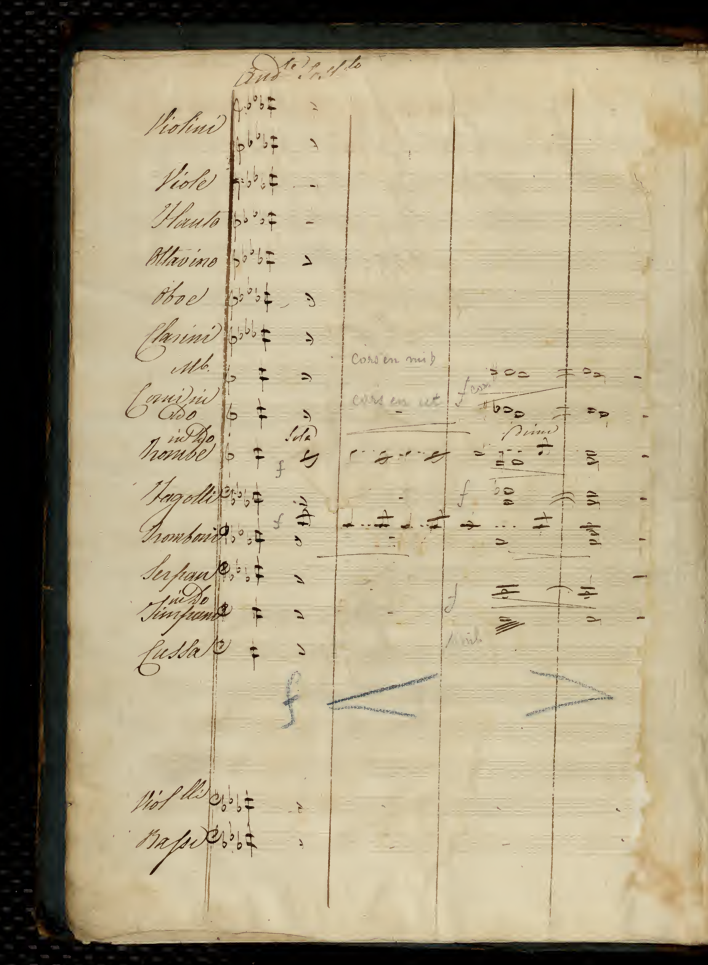 And.te Sost.to
Violini
Viole
Flauto
Ottavino
Oboe
Clarini
cors en mi b
Mib.
Corni in
Do
cors en ut
f
in Do
Trombe
Sola
f
Fagotti
f
f
Tromboni
Serpan
in Do
Timpano
f
Cassa
f
Viol.lli
Bassi